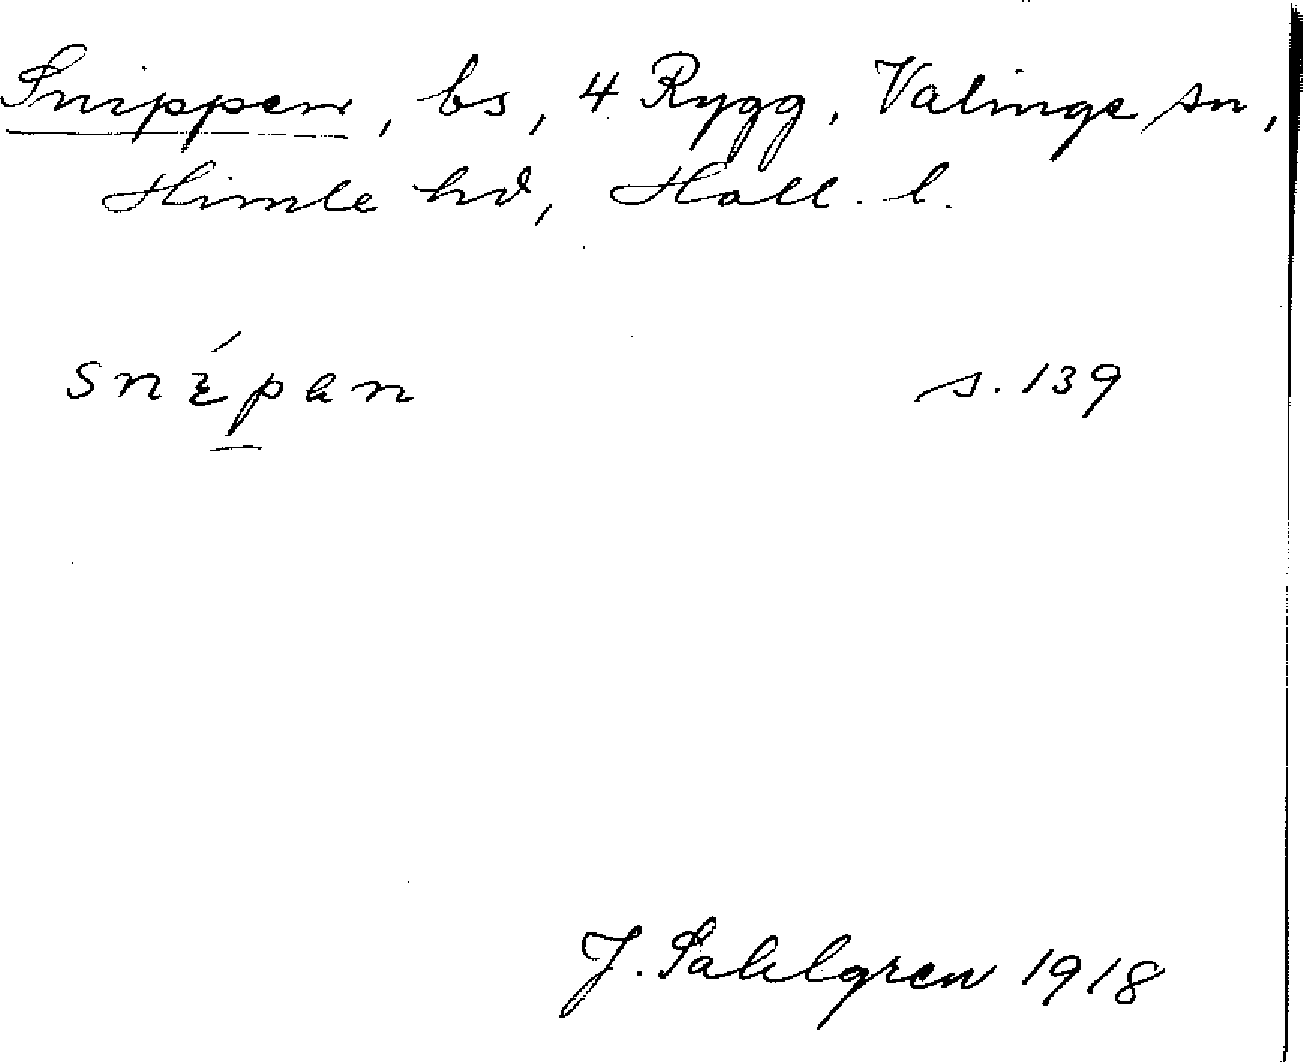 Snippen, bs, 4 Rygg, Valinge sn,
Himle hd, Hall. l.
s. 139
J. Sahlgren 1918